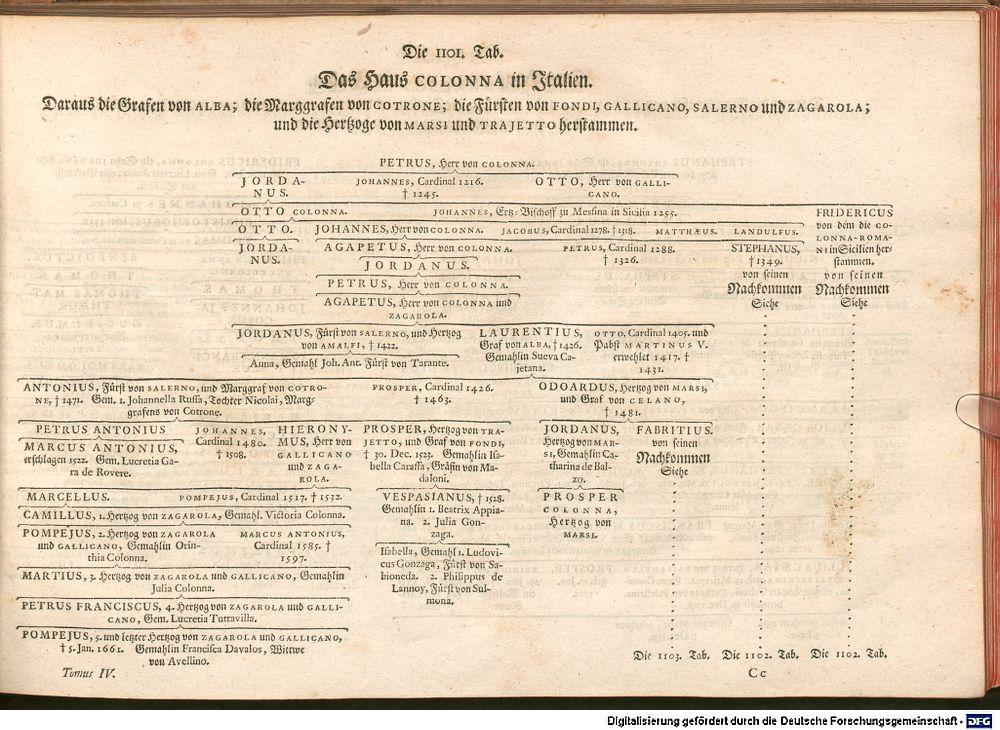 Die 1101. Tab.
Das Haus COLONNA in Italien.
Daraus die Grafen von ALBA; die Marggrafen von COTRONE; die Fürsten von FONDI, GALLICANO, SALERNO und ZAGAROLA;
und die Hertzoge von MARSI und TRAJETTO herstammen.
PETRUS, Herr von COLONNA.
JORDA-
NUS.
JOHANNES, Cardinal 1216.
† 1245.
OTTO, Herr von GALLI-
CANO.
OTTO COLONNA.
JOHANNES, Ertz-Bischoff zu Messina in Sicilia 1255.
FRIDERICUS
von dem die CO-
LONNA-ROMA-
NI in Sicilien her-
stammen.
von seinen
Nachkommen
Siehe
OTTO.
JOHANNES, Herr von COLONNA.
JACOBUS, Cardinal 1278. † 1318.
MATTHÆUS.
LANDULFUS.
JORDA-
NUS.
AGAPETUS, Herr von COLONNA.
PETRUS, Cardinal 1288.
† 1326.
STEPHANUS,
† 1349.
von seinen
Nachkommen
Siehe
JORDANUS.
PETRUS, Herr von COLONNA.
AGAPETUS, Herr von COLONNA und
ZAGAROLA.
JORDANUS, Fürst von SALERNO, und Hertzog
von AMALFI, † 1422.
LAURENTIUS,
Graf von ALBA, † 1426.
Gemahlin Sueva Ca-
jetana.
OTTO, Cardinal 1405. und
Pabst MARTINUS V.
erwehlet 1417. †
1431.
Anna, Gemahl Joh. Ant. Fürst von Tarante.
ANTONIUS, Fürst von SALERNO, und Marggraf von COTRO-
NE, † 1471. Gem. 1. Johannella Ruffa, Tochter Nicolai, Marg-
grafens von Cotrone.
PROSPER, Cardinal 1426.
† 1463.
ODOARDUS, Hertzog von MARSI,
und Graf von CELANO,
† 1481.
PETRUS ANTONIUS
JOHANNES,
Cardinal 1480.
† 1508.
HIERONY-
MUS, Herr von
GALLICANO
und ZAGA-
ROLA.
PROSPER, Hertzog von TRA-
JETTO, und Graf von FONDI,
† 30. Dec. 1523. Gemahlin Isa-
bella Caraffa, Gräfin von Ma-
daloni.
JORDANUS,
Hertzog von MAR-
SI, Gemahlin Ca-
tharina de Bal-
zo.
FABRITIUS.
von seinen
Nachkommen
Siehe
MARCUS ANTONIUS,
erschlagen 1522. Gem. Lucretia Ga-
ra de Rovere.
MARCELLUS.
POMPEJUS, Cardinal 1517. † 1532.
VESPASIANUS, † 1528.
Gemahlin 1. Beatrix Appia-
na. 2. Julia Gon-
zaga.
PROSPER
COLONNA,
Hertzog von
MARSI.
CAMILLUS, 1. Hertzog von ZAGAROLA, Gemahl. Victoria Colonna.
POMPEJUS, 2. Hertzog von ZAGAROLA
und GALLICANO, Gemahlin Orin-
thia Colonna.
MARCUS ANTONIUS,
Cardinal 1585. †
1597.
Isabella, Gemahl 1. Ludovi-
cus Gonzaga, Fürst von Sa-
bioneda. 2. Philippus de
Lannoy, Fürst von Sul-
mona.
MARTIUS, 3. Hertzog von ZAGAROLA und GALLICANO, Gemahlin
Julia Colonna.
PETRUS FRANCISCUS, 4. Hertzog von ZAGAROLA und GALLI-
CANO, Gem. Lucretia Tuttavilla.
POMPEJUS, 5. und letzter Hertzog von ZAGAROLA und GALLICANO,
† 5. Jan. 1661. Gemahlin Francisca Davalos, Wittwe
von Avellino.
Die 1103. Tab. Die 1102. Tab. Die 1102. Tab.
Tomus IV.
Cc
Digitalisierung gefördert durch die Deutsche Forschungsgemeinschaft - DFG